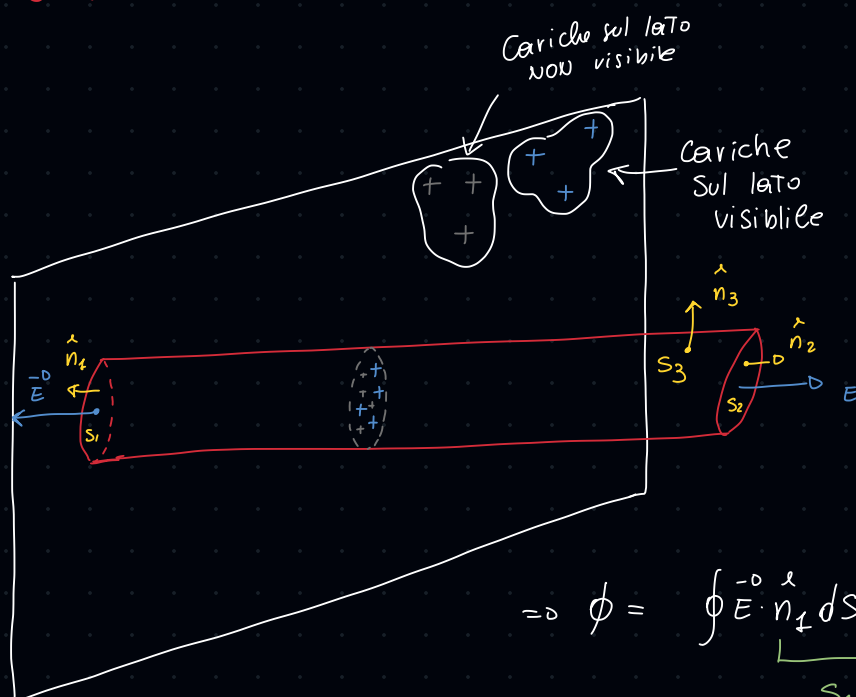 Cariche sul lato
NON visibile
Cariche
sul lato
visiblile
n̂₃
n̂₁
n̂₂
E⃗
S₃
S₁
S₂
E
=> ϕ = ∮ E⃗ · n̂₁ dS